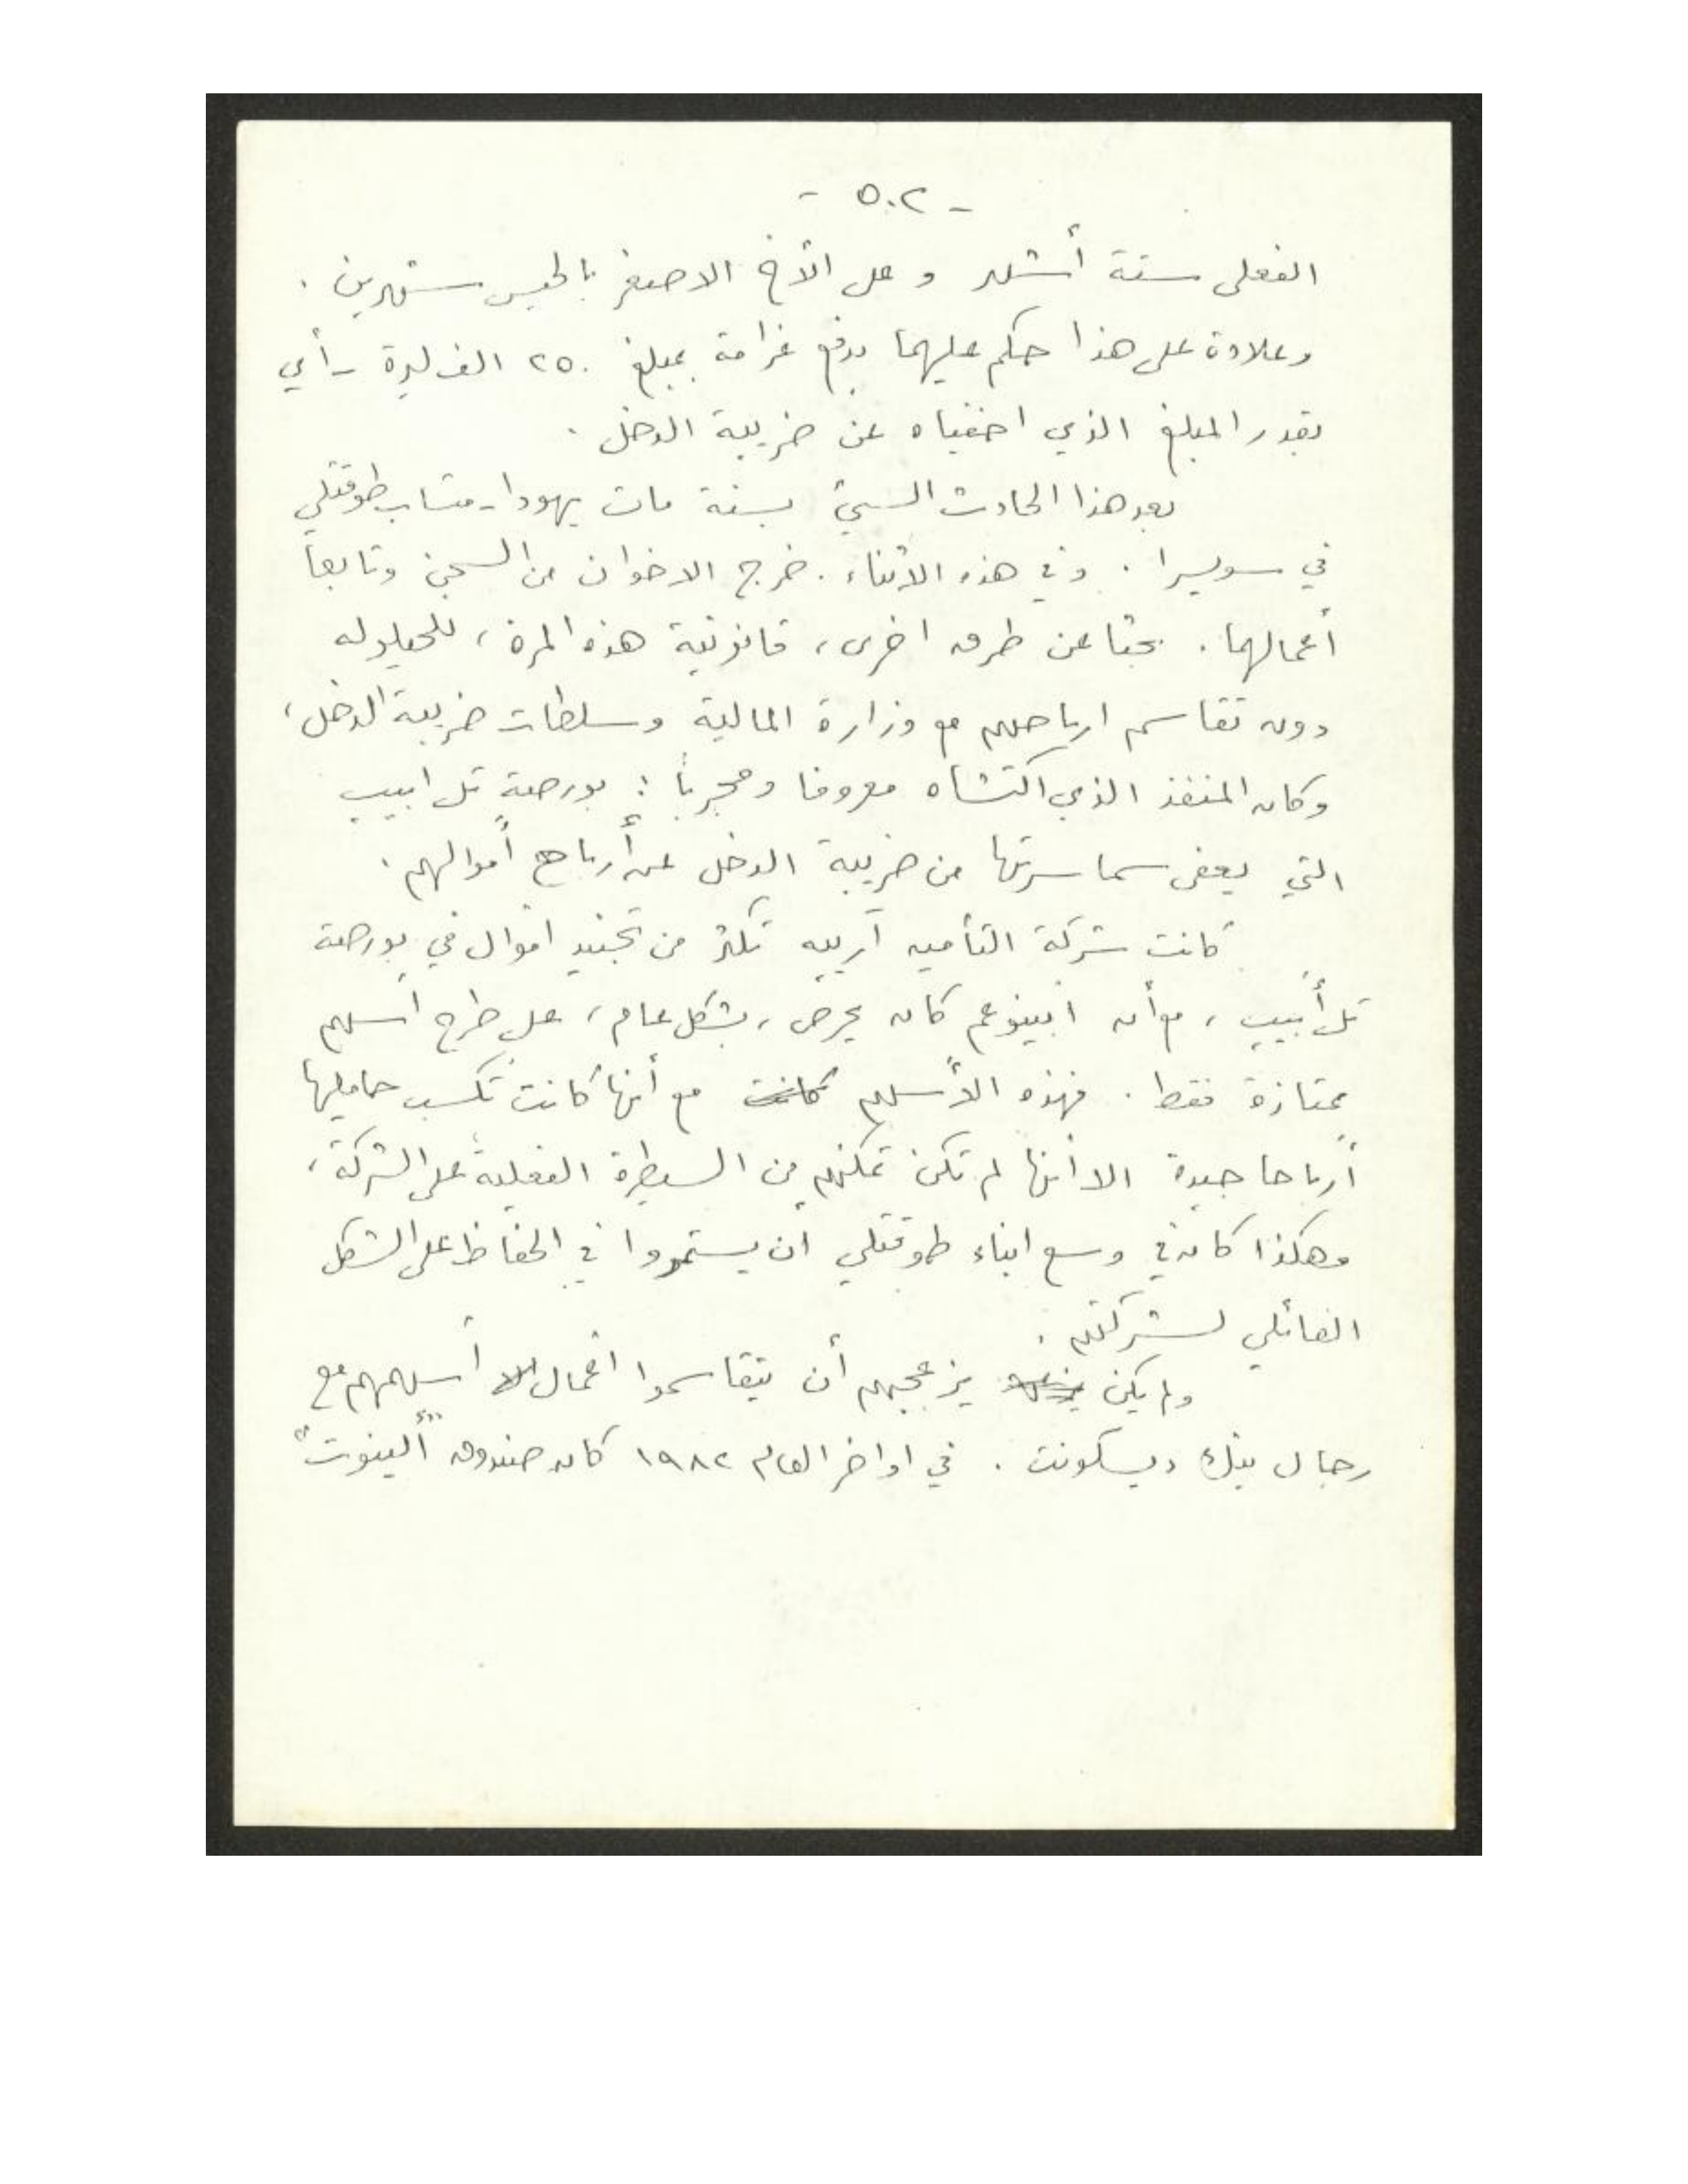 - ٥٠٢ -
الفعلي ستة أشهر وعلى الأخ الاصغر بالحبس شهرين .
وعلاوة على هذا حكم عليهما بدفع غرامة بمبلغ ٢٥٠ الف ليرة - أي
بقدر المبلغ الذي اخفياه عن ضريبة الدخل .
بعد هذا الحادث السيئ بسنة مات يهودا - متساب طوقتلي
في سويسرا . وفي هذه الاثناء . خرج الاخوان من السجن وتابعا
أعمالهما . بحثا عن طرق اخرى ، قانونية هذه المرة ، للحيلوله
دون تقاسم ارباحهم مع وزارة المالية وسلطات ضريبة الدخل ،
وكان المنفذ الذي اكتشاه معروفا ومجرباً : بورصة تل ابيب
التي يعفى سماسرتها من ضريبة الدخل عن أرباح أموالهم .
كانت شركة التأمين آرييه تكثر من تجنيد اموال في بورصة
تل أبيب ، مع أن ابينوعم كان يحرص ، بشكل عام ، على طرح اسهم
ممتازة فقط . فهذه الأسهم كانت مع أنها كانت تكسب حامليها
أرباحا جيدة الا أنها لم تكن تمكنهم من السيطرة الفعلية على الشركة ،
وهكذا كان في وسع ابناء طوقتلي ان يستمروا في الحفاظ على الشكل
العائلي لشركتهم .
ولم يكن يزعجهم أن يتقاسموا اعمال أسهمهم مع
رجال بنك ديسكونت . في اواخر العام ١٩٨٢ كان صندوق "ألينوت"